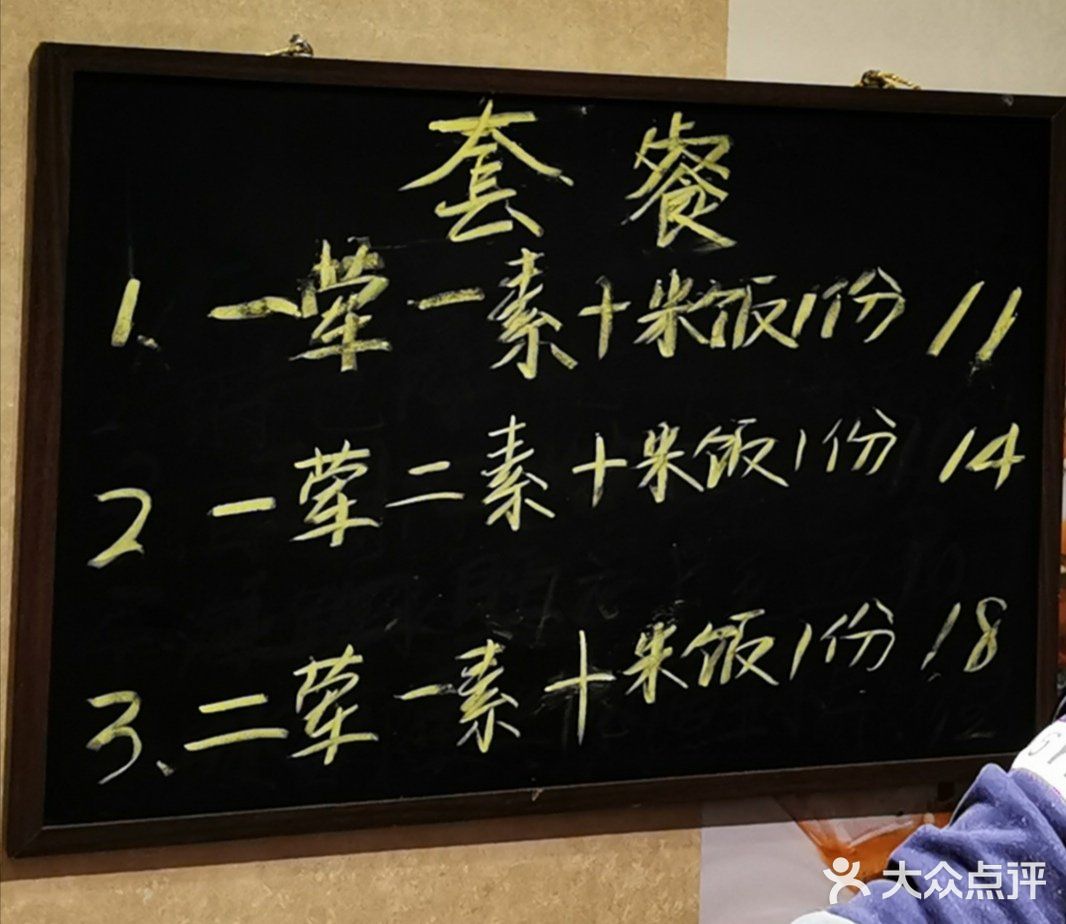 套餐
1、一荤一素+米饭1份 11
2 一荤二素+米饭1份 14
3、二荤一素+米饭1份 18
大众点评